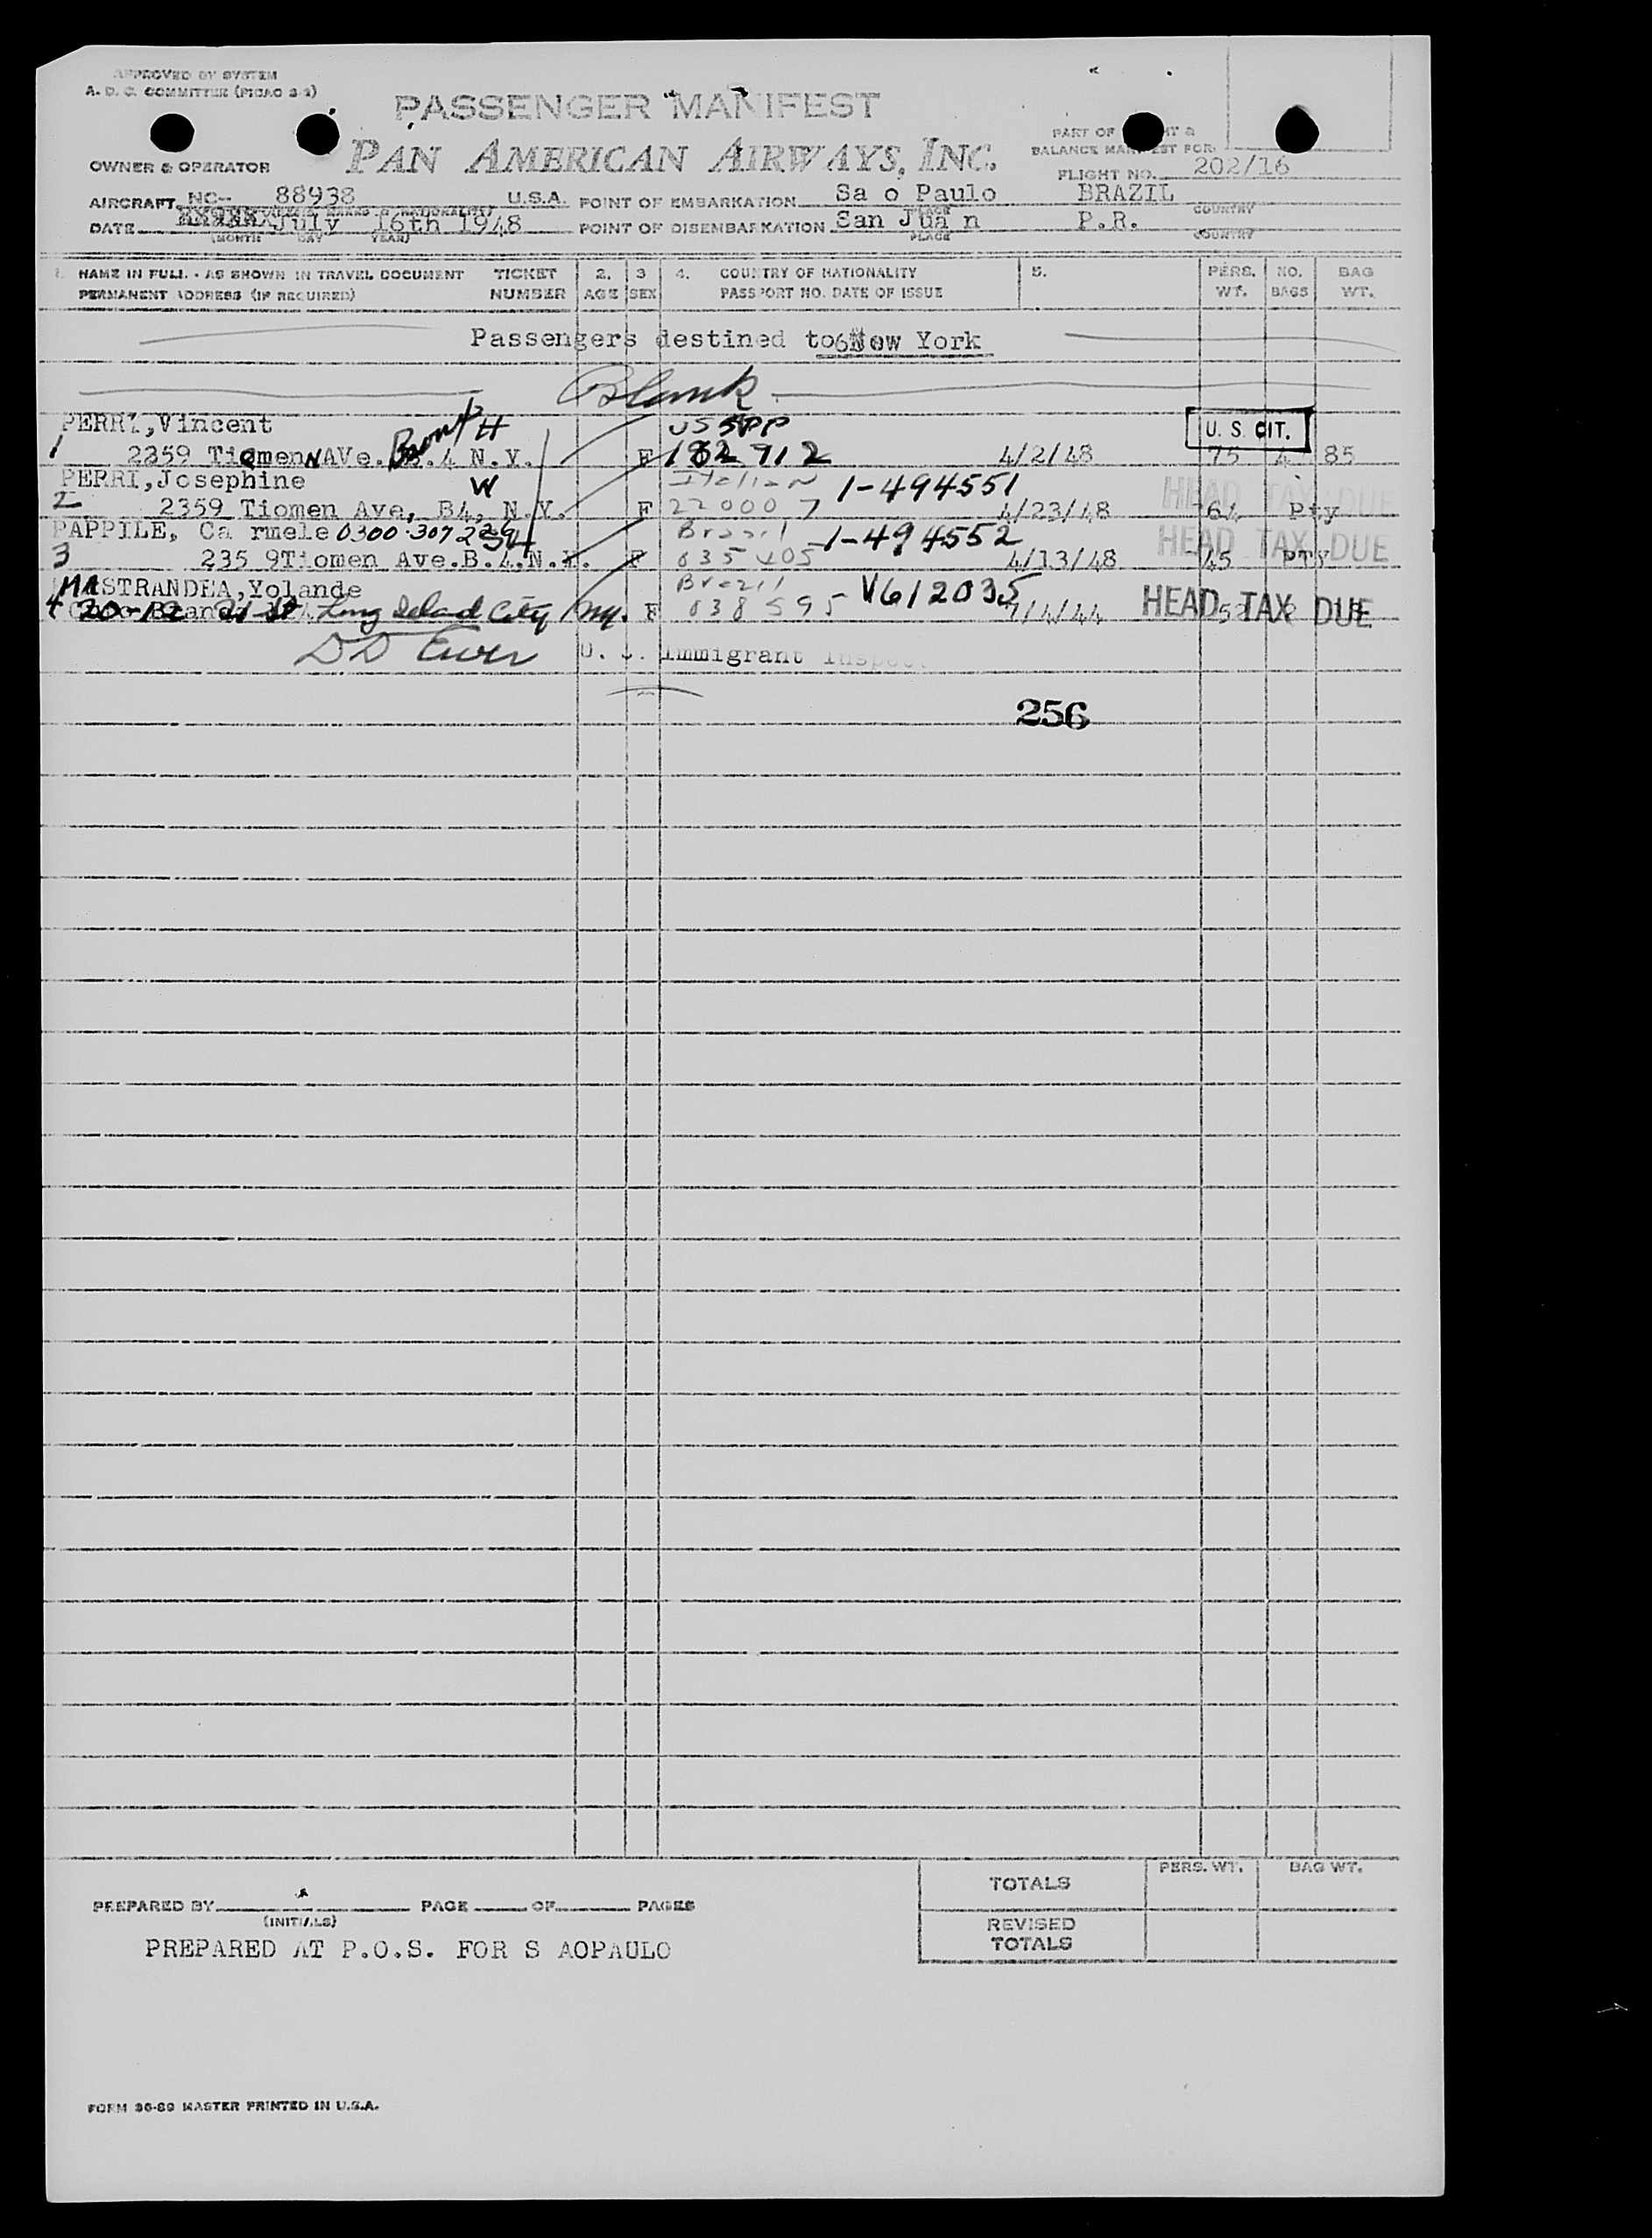 APPROVED BY SYSTEM
A. D. C. COMMITTEE (PICAO 3-2)
PASSENGER MANIFEST
PAN AMERICAN AIRWAYS, INC.
PART OF
BALANCE MANIFEST FOR
OWNER & OPERATOR
FLIGHT NO. 202/16
AIRCRAFT NC- 88938 U.S.A. POINT OF EMBARKATION Sa o Paulo BRAZIL
PLACE COUNTRY
DATE July 16th 1948 POINT OF DISEMBARKATION San Jua n P.R.
(MONTH DAY YEAR) PLACE COUNTRY
1. NAME IN FULL - AS SHOWN IN TRAVEL DOCUMENT TICKET 2. 3 4. COUNTRY OF NATIONALITY 5. PERS. NO. BAG
PERMANENT ADDRESS (IF REQUIRED) NUMBER AGE SEX PASSPORT NO. DATE OF ISSUE WT. BAGS WT.
Passengers destined to New York
Blank
PERRI,Vincent H US SPP U. S. CIT.
1 2359 Tiemen AVe. Bronx .4 N.Y. F 182 912 4/2/48 75 4 85
PERRI,Josephine W Italian 1-494551 HEAD TAX DUE
2 2359 Tiomen Ave, B4, N.Y. F 220007 4/23/48 64 Pty
PAPPILE, Ca rmele 0300-307 Brazil 1-494552 HEAD TAX DUE
3 235 9Tiomen Ave.B.4.N.Y. F 035405 4/13/48 45 PTY
MASTRANDEA,Yolande Brazil V612035 HEAD TAX DUE
4 20-12 21 St Long Island City NY. F 038595 /4/44 52 2
U. S. Immigrant Inspec
256
PREPARED BY PAGE OF PAGES
(INITIALS)
TOTALS PERS. WT. BAG WT.
REVISED
TOTALS
PREPARED AT P.O.S. FOR S AOPAULO
FORM 36-89 MASTER PRINTED IN U.S.A.